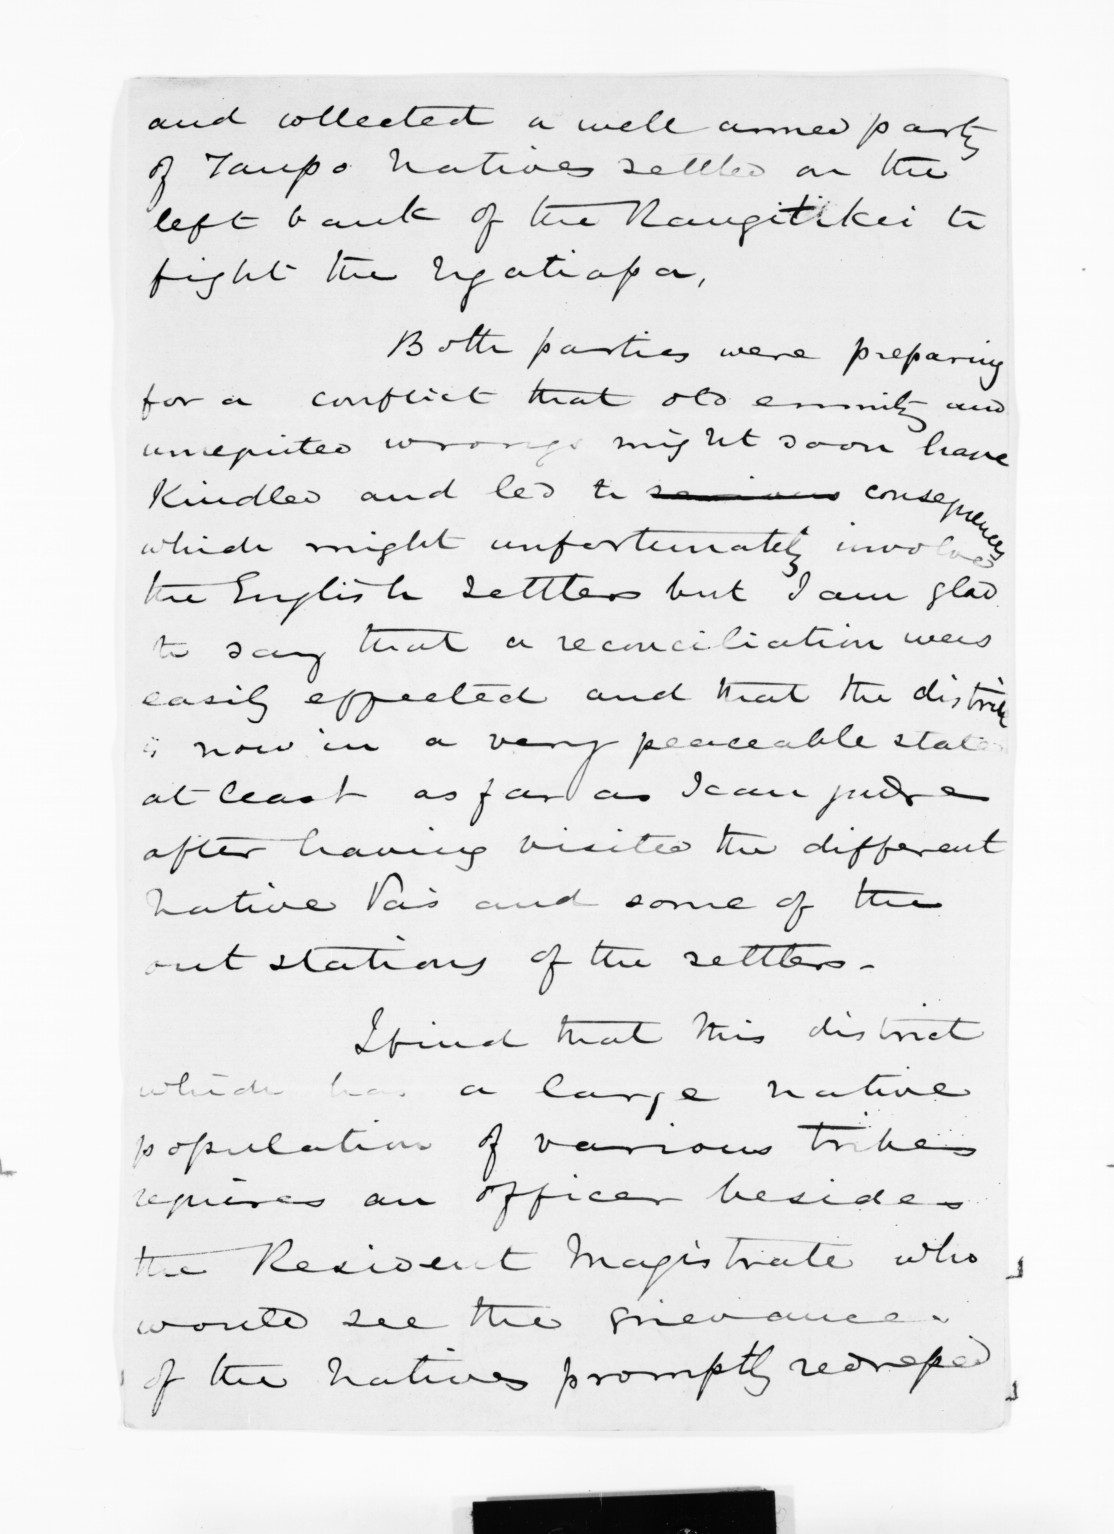 and collected a well armed party
of Taupo Natives settled on the
left bank of the Rangitikei to
fight the Ngatiapa,
Both parties were preparing
for a conflict that old enmity and
unrequited wrongs might soon have
Kindled and led to serious consequences
which might unfortunately involve
the English settlers but I am glad
to say that a reconciliation was
easily effected and that the district
is now in a very peaceable state
at least as far as I can judge
after having visited the different
Native Pas and some of the
out stations of the settlers.
I find that this district
which has a large native
population of various tribes
requires an officer besides
the Resident Magistrate who
would see the grievances
of the Natives promptly redressed